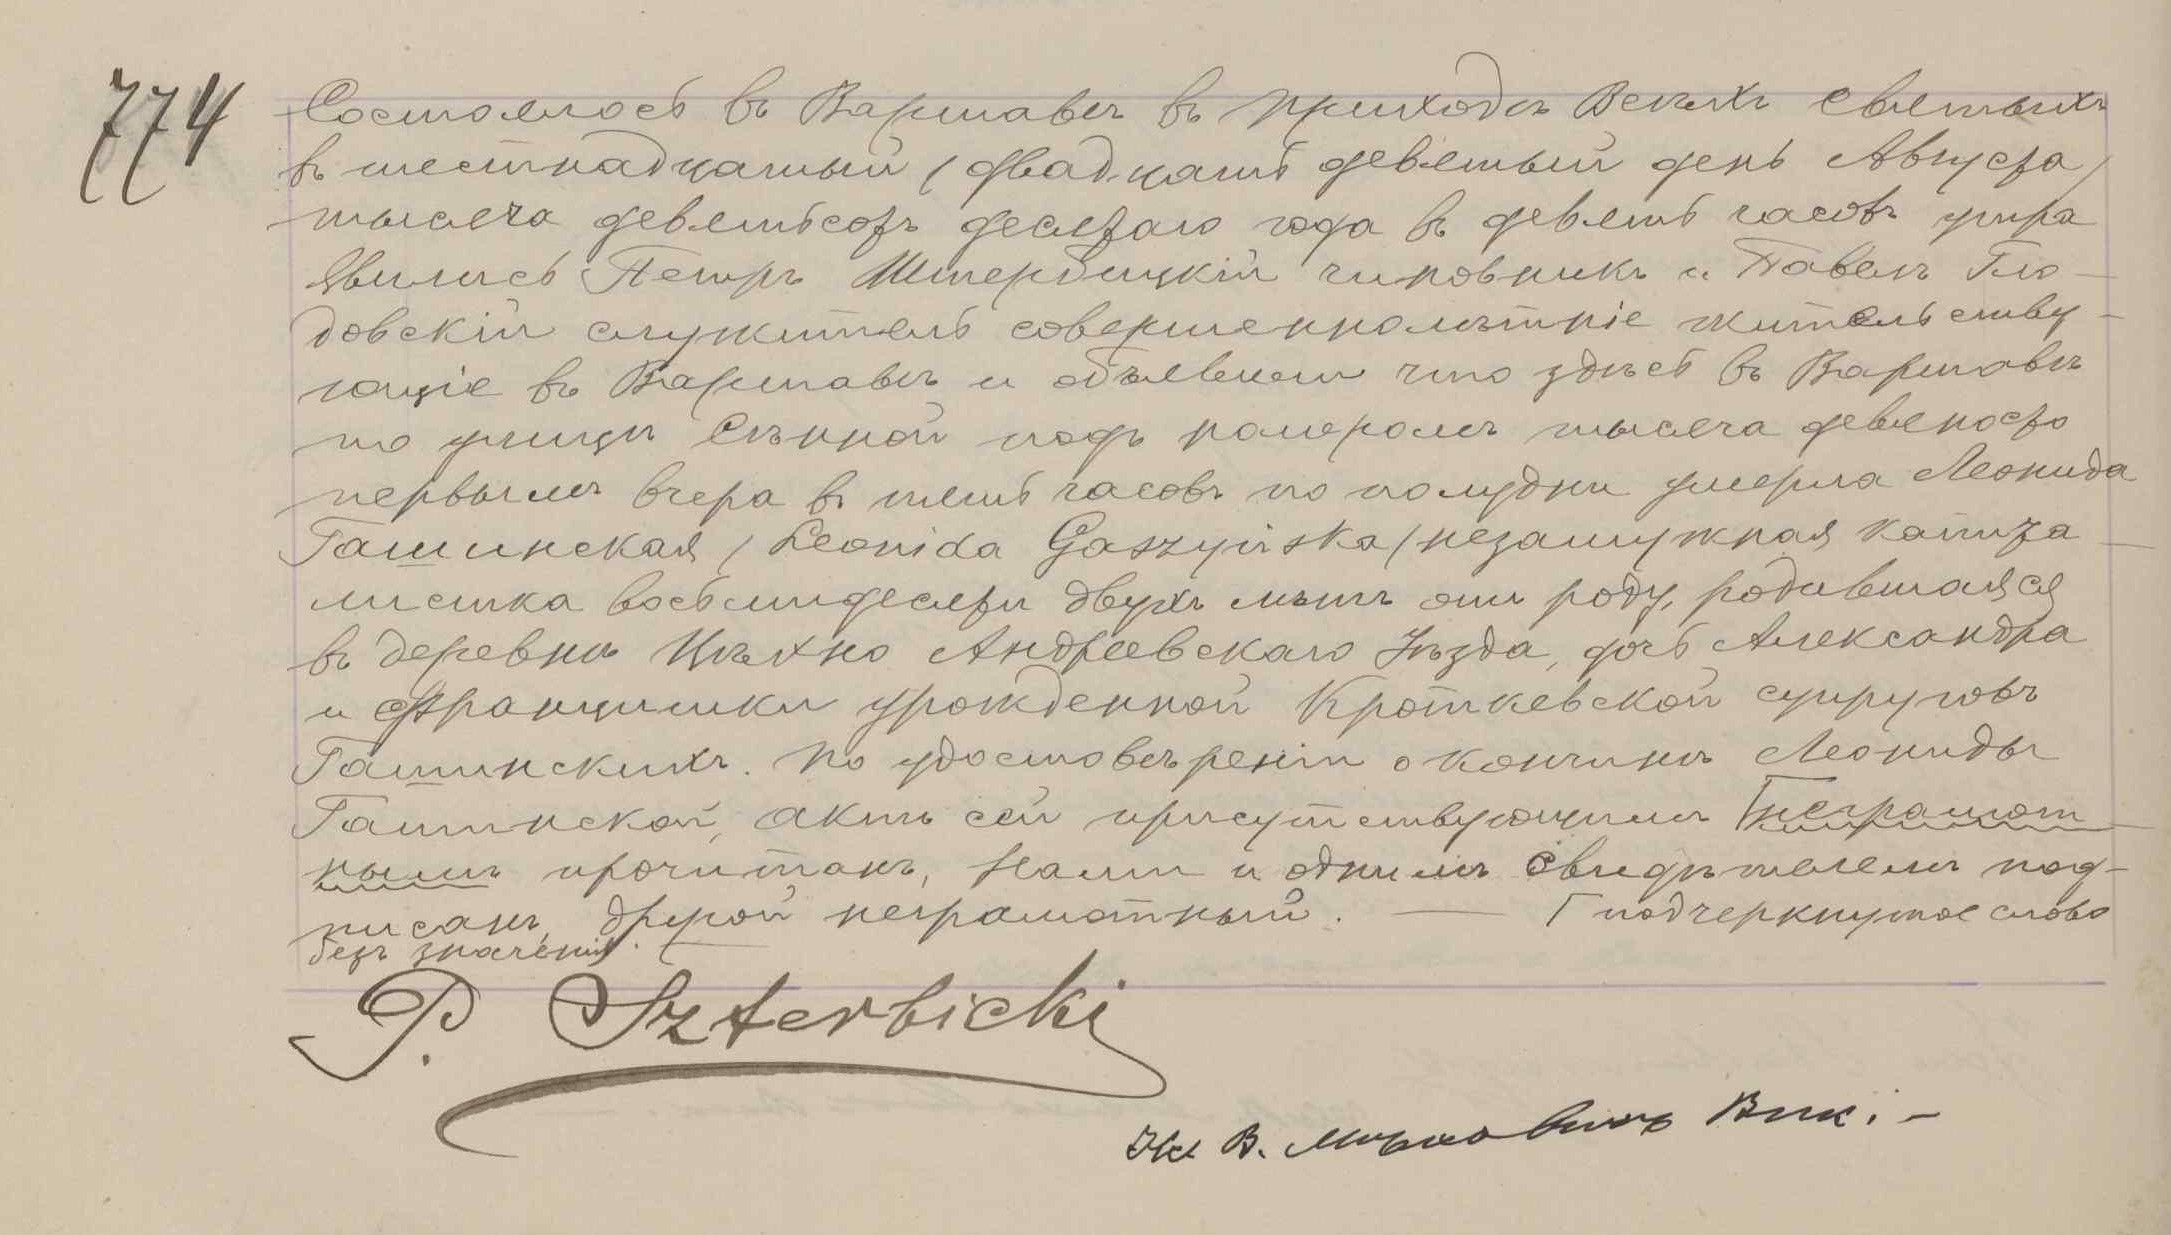 774
Состоялось въ Варшавѣ въ приходѣ Всѣхъ Святыхъ
въ шестнадцатый / двадцать девятый день Августа /
тысяча девятьсотъ десятаго года въ девять часовъ утра
явились Петръ Штербицкій чиновникъ и Павелъ Гло-
довскій служитель совершеннолѣтніе жительству-
ющіе въ Варшавѣ и объявили что здѣсь въ Варшавѣ
по улицѣ Сѣнной подъ номеромъ тысяча девяносто
первымъ вчера въ пять часовъ по полудни умерла Леонида
Гашинская / Leonida Gaszyńska / незамужная капита-
листка восьмидесяти двухъ лѣтъ отъ роду, родившаяся
въ деревнѣ Цѣхно Андреевскаго Уѣзда, дочь Александра
и Францишки урожденной Кроткевской супруговъ
Гашинскихъ. По удостовѣреніи о кончинѣ Леониды
Гашинской, актъ сей присутствующимъ Г неграмот-
нымъ прочитанъ, Нами и однимъ свидѣтелемъ под-
писанъ, другой неграмотный. — Г подчеркнутое слово
безъ значенія. —
P. Szterbicki
В. Вик. -